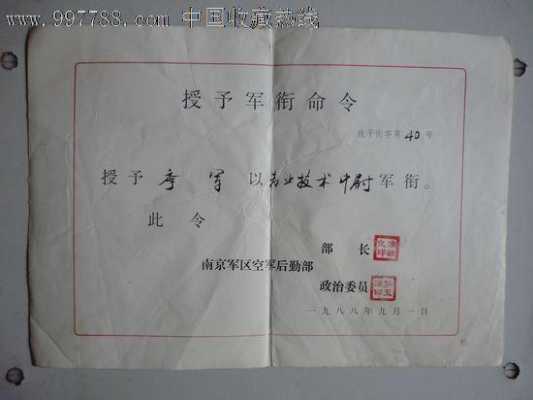 www.997788.com 中国收藏热线
授予军衔命令
40 号
授予 军 以专业技术中尉军衔。
此令
部长
南京军区空军后勤部
政治委员
一九八八年九月一日